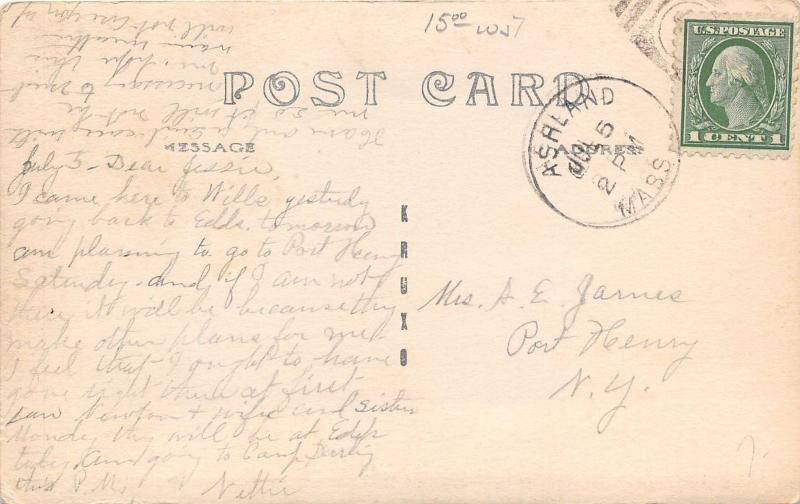 15⁰⁰ WJ7
POST CARD
MESSAGE
ADDRESS
U.S. POSTAGE
1 CENT 1
ASHLAND
JUL 5
2 PM
MASS.
KRUXO
July 5 - Dear Jessie,
I came here to Wills yesterdy
going back to Edds. tomorrow
am planning to go to Port Henry
Saturday. and if I am not
there it will be because they
make other plans for me.
I feel that I ought to have
gone right there at first
saw Newton & wife and sister
Monday they will be at Edds
today. am going to Camp
this P.M. Nettie
Ham and is and
me so it will not be
necessary to
me. hope this
warm
will not
Mrs. A. E. Jarnes
Port Henry
N. Y.